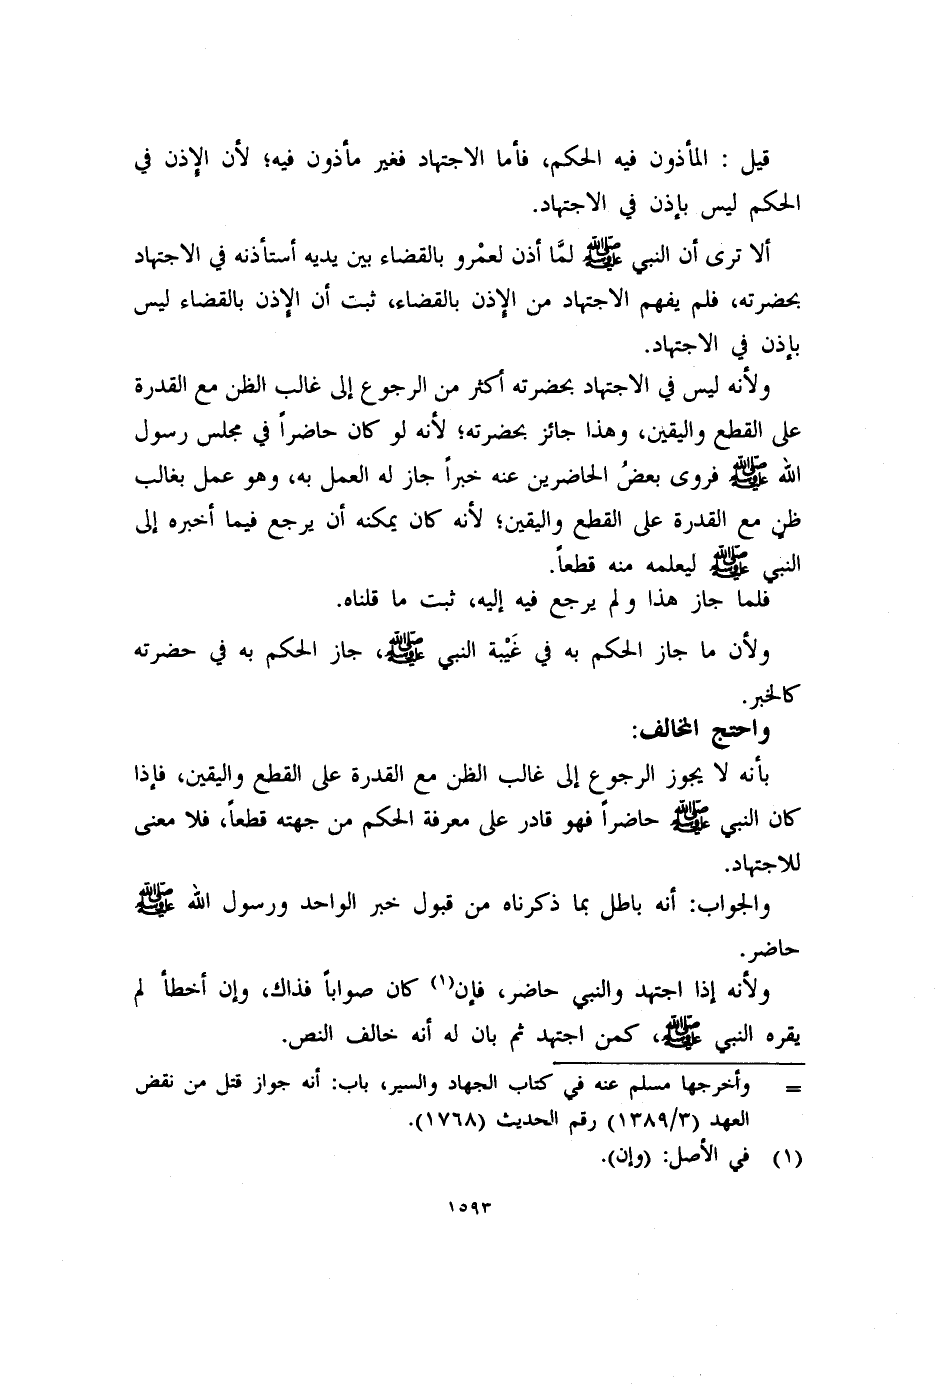 قيل : المأذون فيه الحكم، فأما الاجتهاد فغير مأذون فيه؛ لأن الإذن في
الحكم ليس بإذن في الاجتهاد.
ألا ترى أن النبي ﷺ لمَّا أذن لعمْرو بالقضاء بين يديه أستأذنه في الاجتهاد
بحضرته، فلم يفهم الاجتهاد من الإذن بالقضاء، ثبت أن الإذن بالقضاء ليس
بإذن في الاجتهاد.
ولأنه ليس في الاجتهاد بحضرته أكثر من الرجوع إلى غالب الظن مع القدرة
على القطع واليقين، وهذا جائز بحضرته؛ لأنه لو كان حاضراً في مجلس رسول
الله ﷺ فروى بعضُ الحاضرين عنه خبراً جاز له العمل به، وهو عمل بغالب
ظنٍ مع القدرة على القطع واليقين؛ لأنه كان يمكنه أن يرجع فيما أخبره إلى
النبي ﷺ ليعلمه منه قطعاً.
فلما جاز هذا ولم يرجع فيه إليه، ثبت ما قلناه.
ولأن ما جاز الحكم به في غَيْبة النبي ﷺ، جاز الحكم به في حضرته
كالخبر.
واحتج المخالف:
بأنه لا يجوز الرجوع إلى غالب الظن مع القدرة على القطع واليقين، فإذا
كان النبي ﷺ حاضراً فهو قادر على معرفة الحكم من جهته قطعاً، فلا معنى
للاجتهاد.
والجواب: أنه باطل بما ذكرناه من قبول خبر الواحد ورسول الله ﷺ
حاضر.
ولأنه إذا اجتهد والنبي حاضر، فإن(١) كان صواباً فذاك، وإن أخطأ لم
يقره النبي ﷺ، كمن اجتهد ثم بان له أنه خالف النص.
= وأخرجها مسلم عنه في كتاب الجهاد والسير، باب: أنه جواز قتل من نقض
العهد (١٣٨٩/٣) رقم الحديث (١٧٦٨).
(١) في الأصل: (وإن).
١٥٩٣